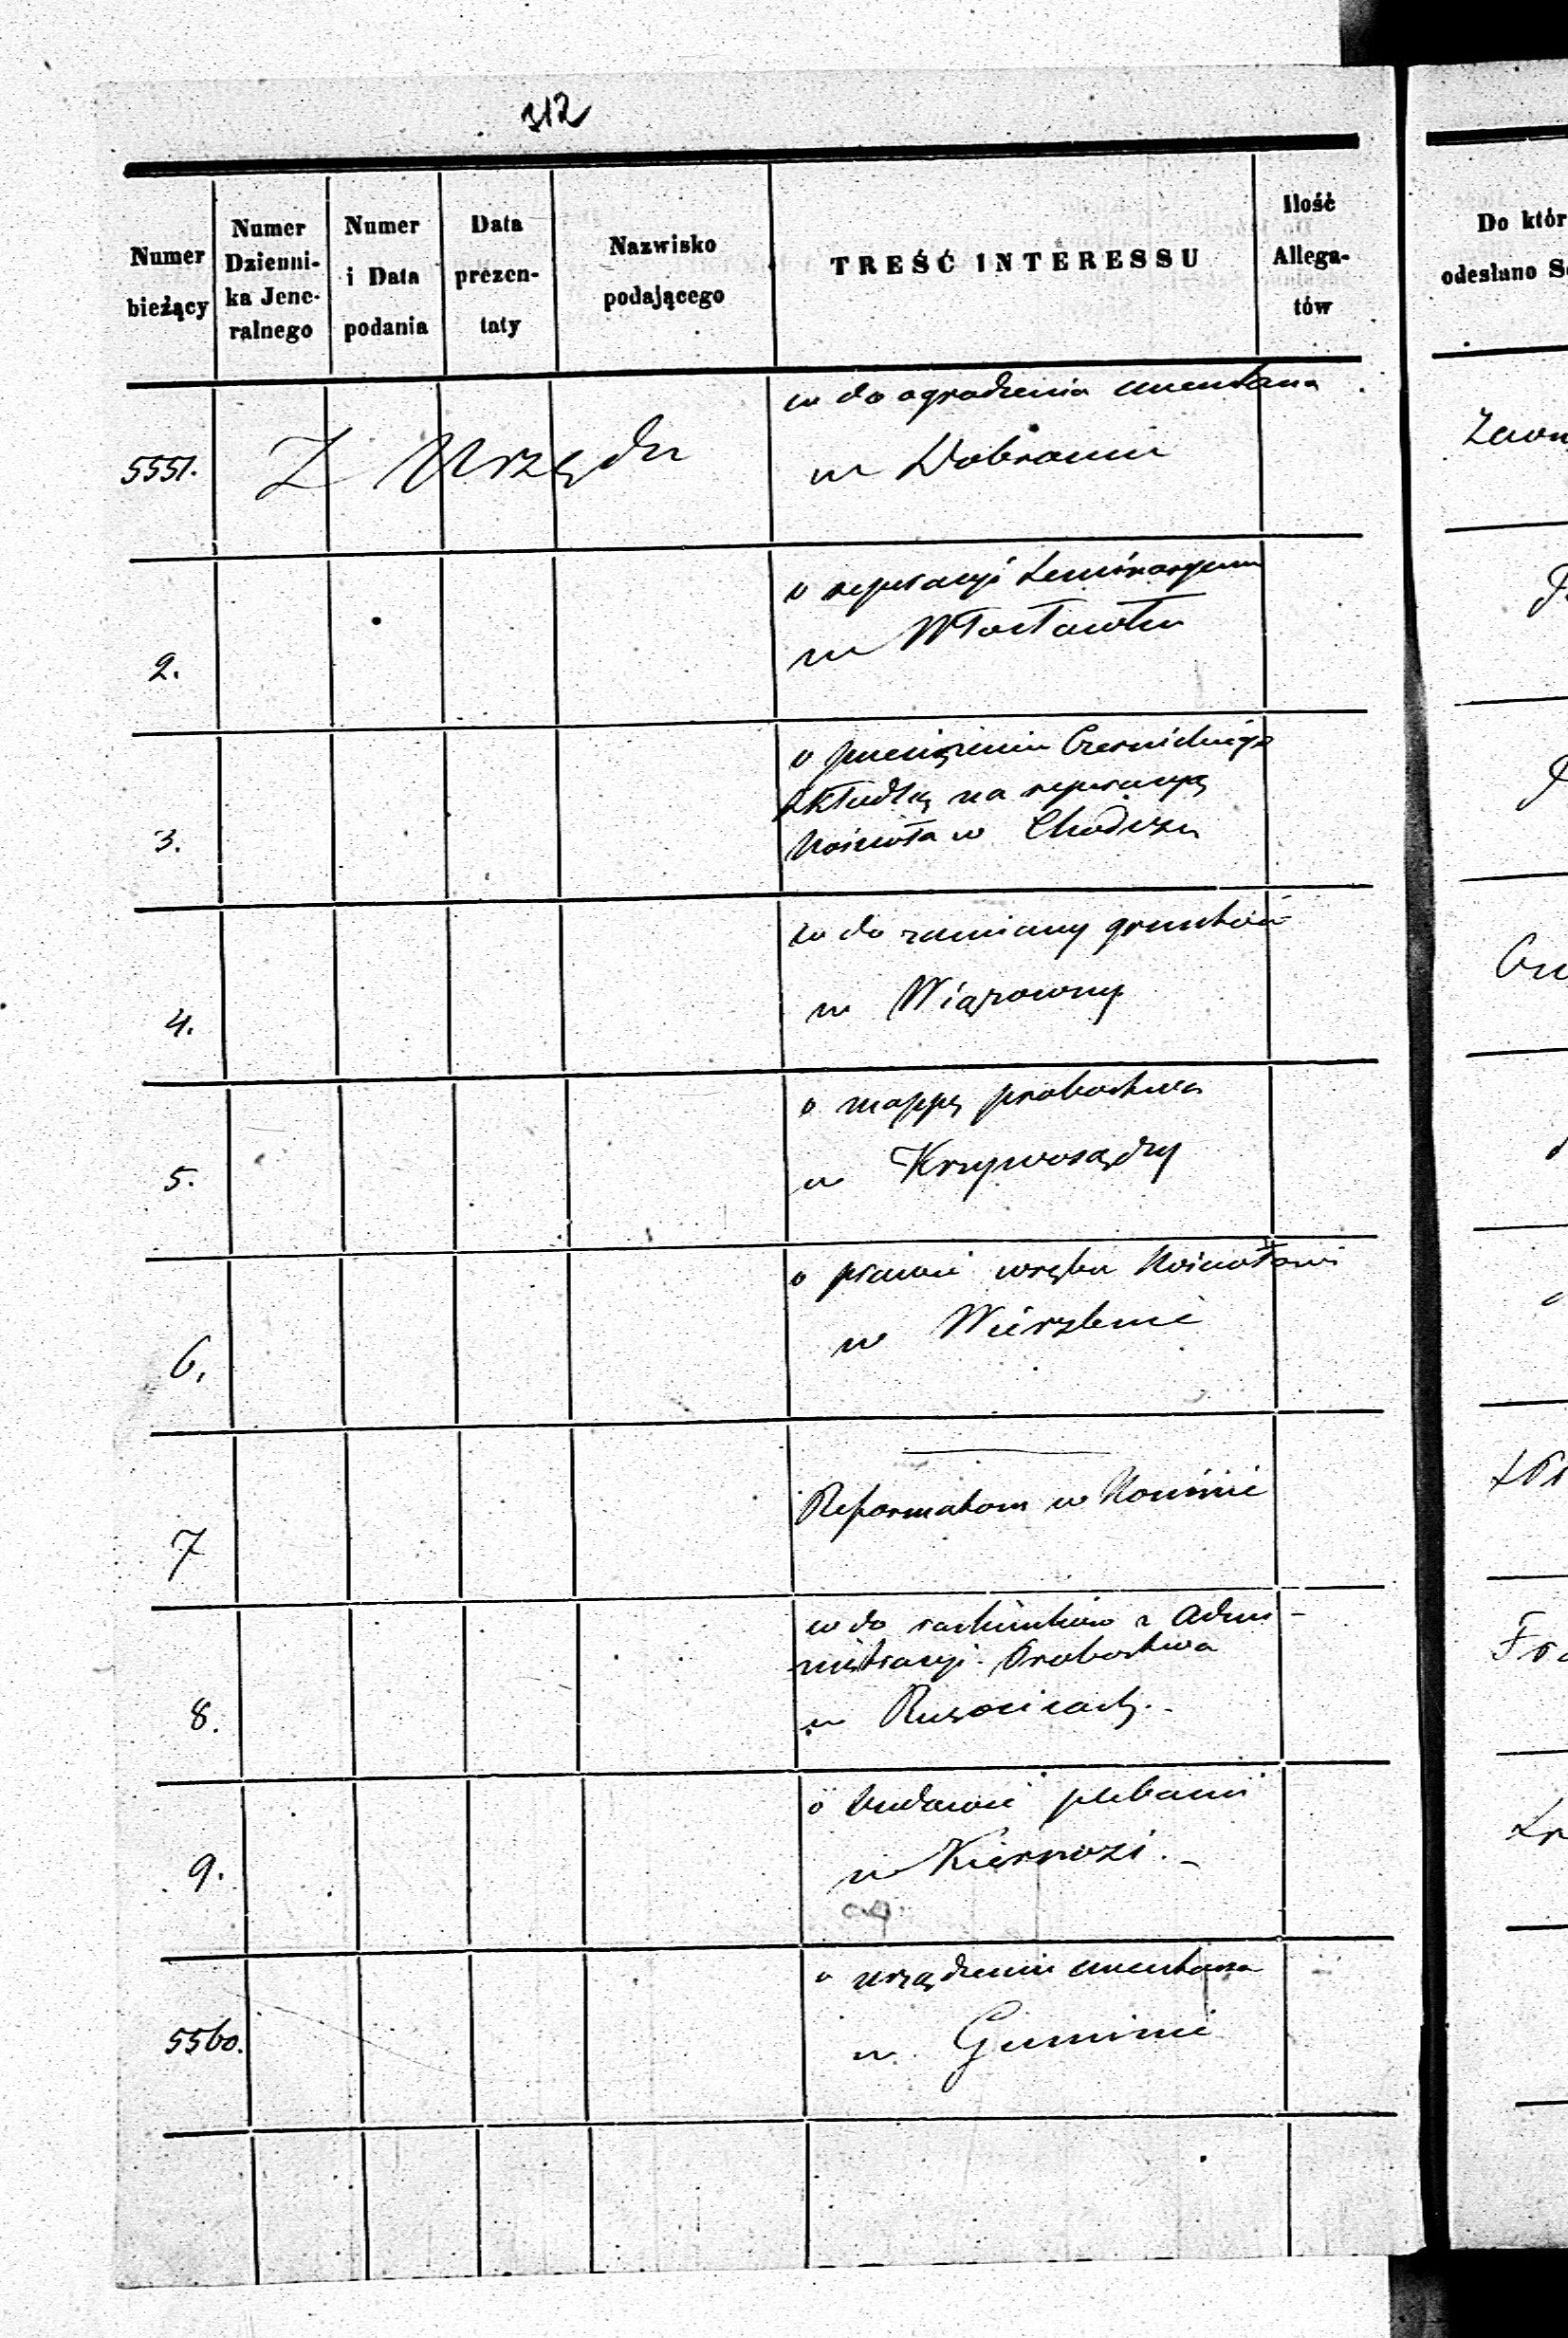 312
Numer bieżący
Numer Dzienni-ka Jene-ralnego
Numer i Data podania
Data prezen-taty
Nazwisko podającego
TREŚĆ INTERESSU
Ilość Allega-tów
Do któr
odesłano S
5551. Z Urzędu
w do ogrodzenia cmentarza
w Dobraniu
2.
o reperacyi Seminaryum
w Włocławku
3.
o Czernickiego
składką na reperacyą
Kościoła w Chodczu
4.
w do zamiany gruntów
w Wiązowny
5.
o mappę probostwa
w Krzywosądzy
6.
o prawie wrębu Kościołowi
w Wierzbnie
7
Reformatom w Koninie
8.
w do rachunków z Admi-
nistracyi Probostwa
w Rusocicach.
9.
o budowie plebanii
w Kiernozi. -
5560.
o urządzeniu cmentarza
w Guminie